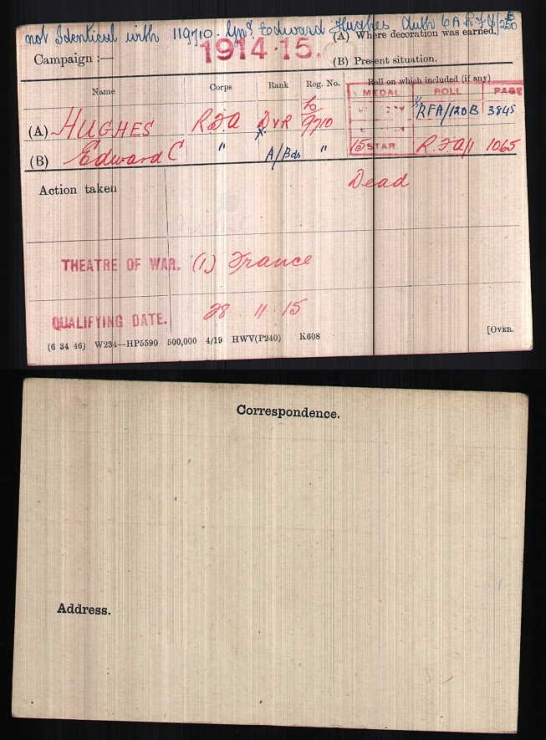 not Identical with 119710. Gnr Edward Hughes Auth
(A) Where decoration was earned.
Campaign :— 1914-15.
(B) Present situation.
Name Corps Rank Reg. No. Roll on which included (if any)
MEDAL ROLL PAGE
(A) HUGHES R.F.A DVR 9710 RFA/120B 3845
(B) Edward C " A/Bdr " 15 STAR R.F.A/1 1065
Action taken Dead
THEATRE OF WAR. (1) France
QUALIFYING DATE. 28 11 15
(6 34 46) W234—HP5590 500,000 4/19 HWV(P240) K608 [OVER.
Correspondence.
Address.